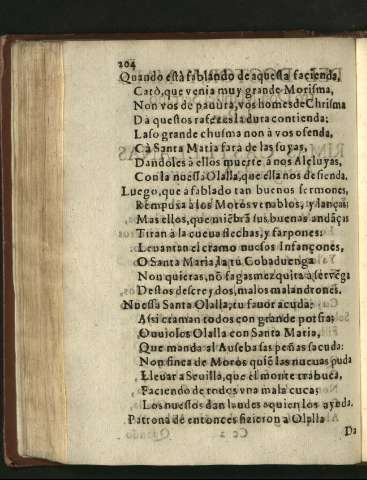 204
Quando està fablando de aquesta facienda,
Catò, que venia muy grande Morisma,
Non vos de pauùra, vos homes de Chrisma
Da questos rafezes la dura contienda:
Laso grande chusma non à vos ofenda,
Cà Santa Maria farà de las suyas,
Dandoles à ellos muerte â nos Aleluyas,
Con la nuessa Olalla, que ella nos defienda.
Luego, que a fablado tan buenos sermones,
Rempuxa à los Moros venablos, y lanças;
Mas ellos, que miẽbrã sus buenas andãças
Tiran à la cueua flechas, y farpones:
Leuantan el cramo nuesos Infançones,
O Santa Maria, la tù Cobaduenga
Non quieras, nõ fagas mezquita à
Destos descreydos, malos malandrones.
Nuessa Santa Olalla, tu fauor acuda:
Assi craman todos con grande porfia;
Ouuiolos Olalla con Santa Maria,
Que manda al Auseba sas peñas sacuda:
Non finca de Moros quiẽ las nueuas puda
Lleuar a Seuilla, que el monte trabuca,
Faciendo de todos vna mala cuca;
Los nuessos dan laudes a quien los ayuda.
Patrona de entonces fizieron a Olalla
Da